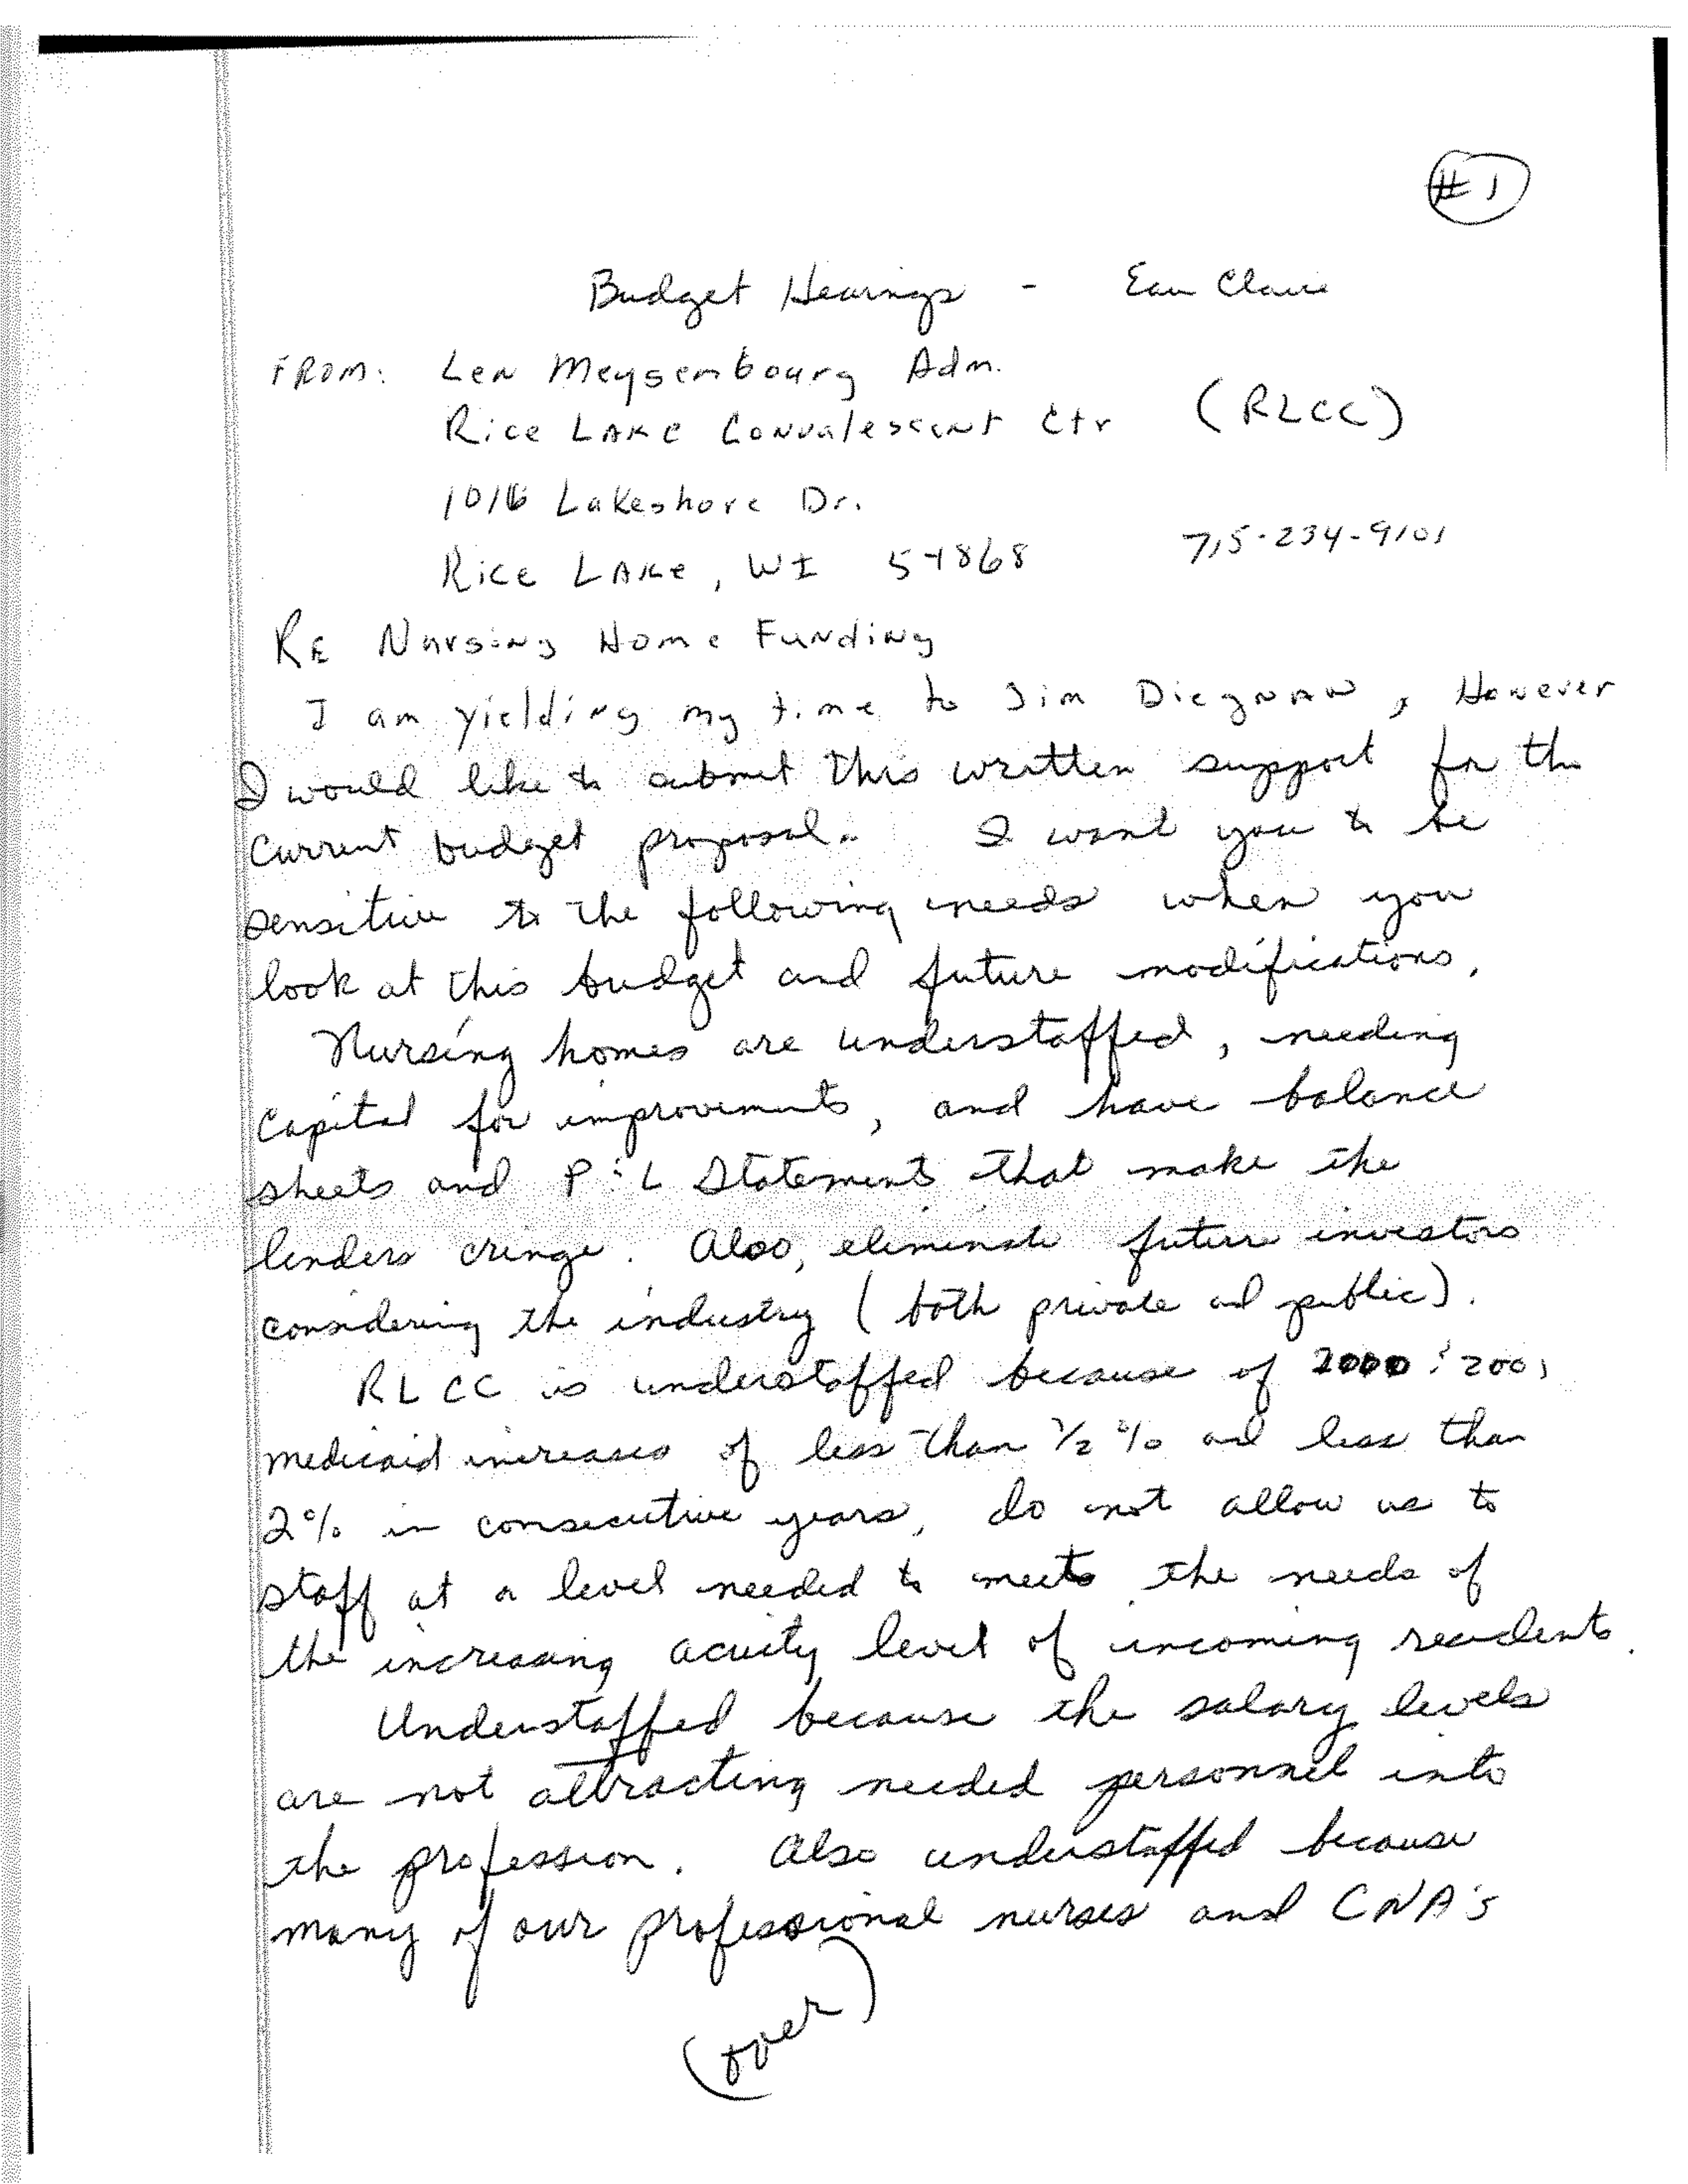 #1
Budget Hearings - Eau Claire
FROM: Len Meysembourg Adm.
Rice LAKE Convalescent Ctr (RLCC)
1016 Lakeshore Dr.
Rice LAKE, WI 54868 715-234-9101
RE Nursing Home Funding
I am yielding my time to Jim Diegnaw, However
I would like to submit this written support for the
current budget proposal. I want you to be
sensitive to the following needs when you
look at this budget and future modifications.
Nursing homes are understaffed, needing
capital for improvements, and have balance
sheets and P & L Statements that make the
lenders cringe. Also, eliminate future investors
considering the industry (both private and public).
RLCC is understaffed because of 2000 & 2001
medicaid increases of less than 1/2 % and less than
2% in consecutive years, do not allow us to
staff at a level needed to meet the needs of
the increasing acuity level of incoming residents.
Understaffed because the salary levels
are not attracting needed personnel into
the profession. Also understaffed because
many of our professional nurses and CNA's
(over)